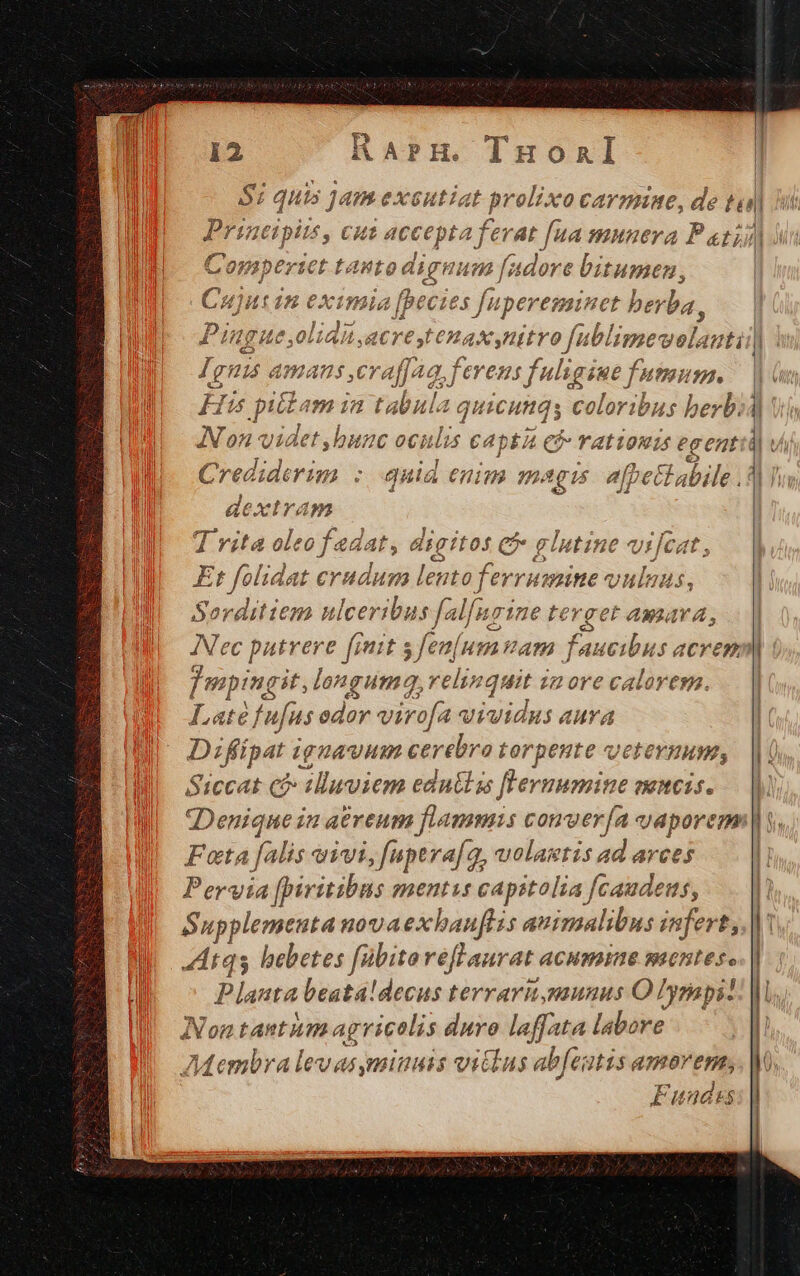 12 RAPH. THORI
Si quis jam excutiat prolixo carmine, de
Principiis, cui accepta ferat ſua munera
Comperiet tanto dignum ſudore bitumen,
Cujus in eximia ſpecies ſupereminet herba,
Pingue, olidũ, acre, tenax, nitro ſublime volanti
Ignis amans, craſſaq; ferens fuligine fumum.
His pictam in tabula quicunq; coloribus herbã
Non videt, hunc oculis captũ & rationis egentẽ
Crediderim : quid enim magis aſpectabile
dextram
Trita oleo fædat, digitos & glutine viſcat,
Et ſolidat crudum lento ferrumine vulnus,
Sorditiem ulceribus ſalſugine terget amara,
Nec putrere ſinit; ſenſum nam faucibus acrem
Impingit, longumq; relinquit in ore calorem.
Latè fuſus odor viroſa vividus aura
Diſſipat ignavum cerebro torpente veternum,
Siccat & illuviem eductis ſternumine muncis.
Denique in aëreum flammis converſa vaporem
Fœta ſalis vivi, ſuperaſq; volantis ad arces
Pervia ſpiritibus mentis capitolia ſcandens,
Supplementa nova exhauſtis animalibus infert,
Atq; hebetes ſubito reſtaurat acumine mentes.
Planta beata! decus terrarũ, munus Olympi!
Non tantùm agricolis duro laſſata labore
Membra levas, minuis victus abſentis amorem,
Fundis